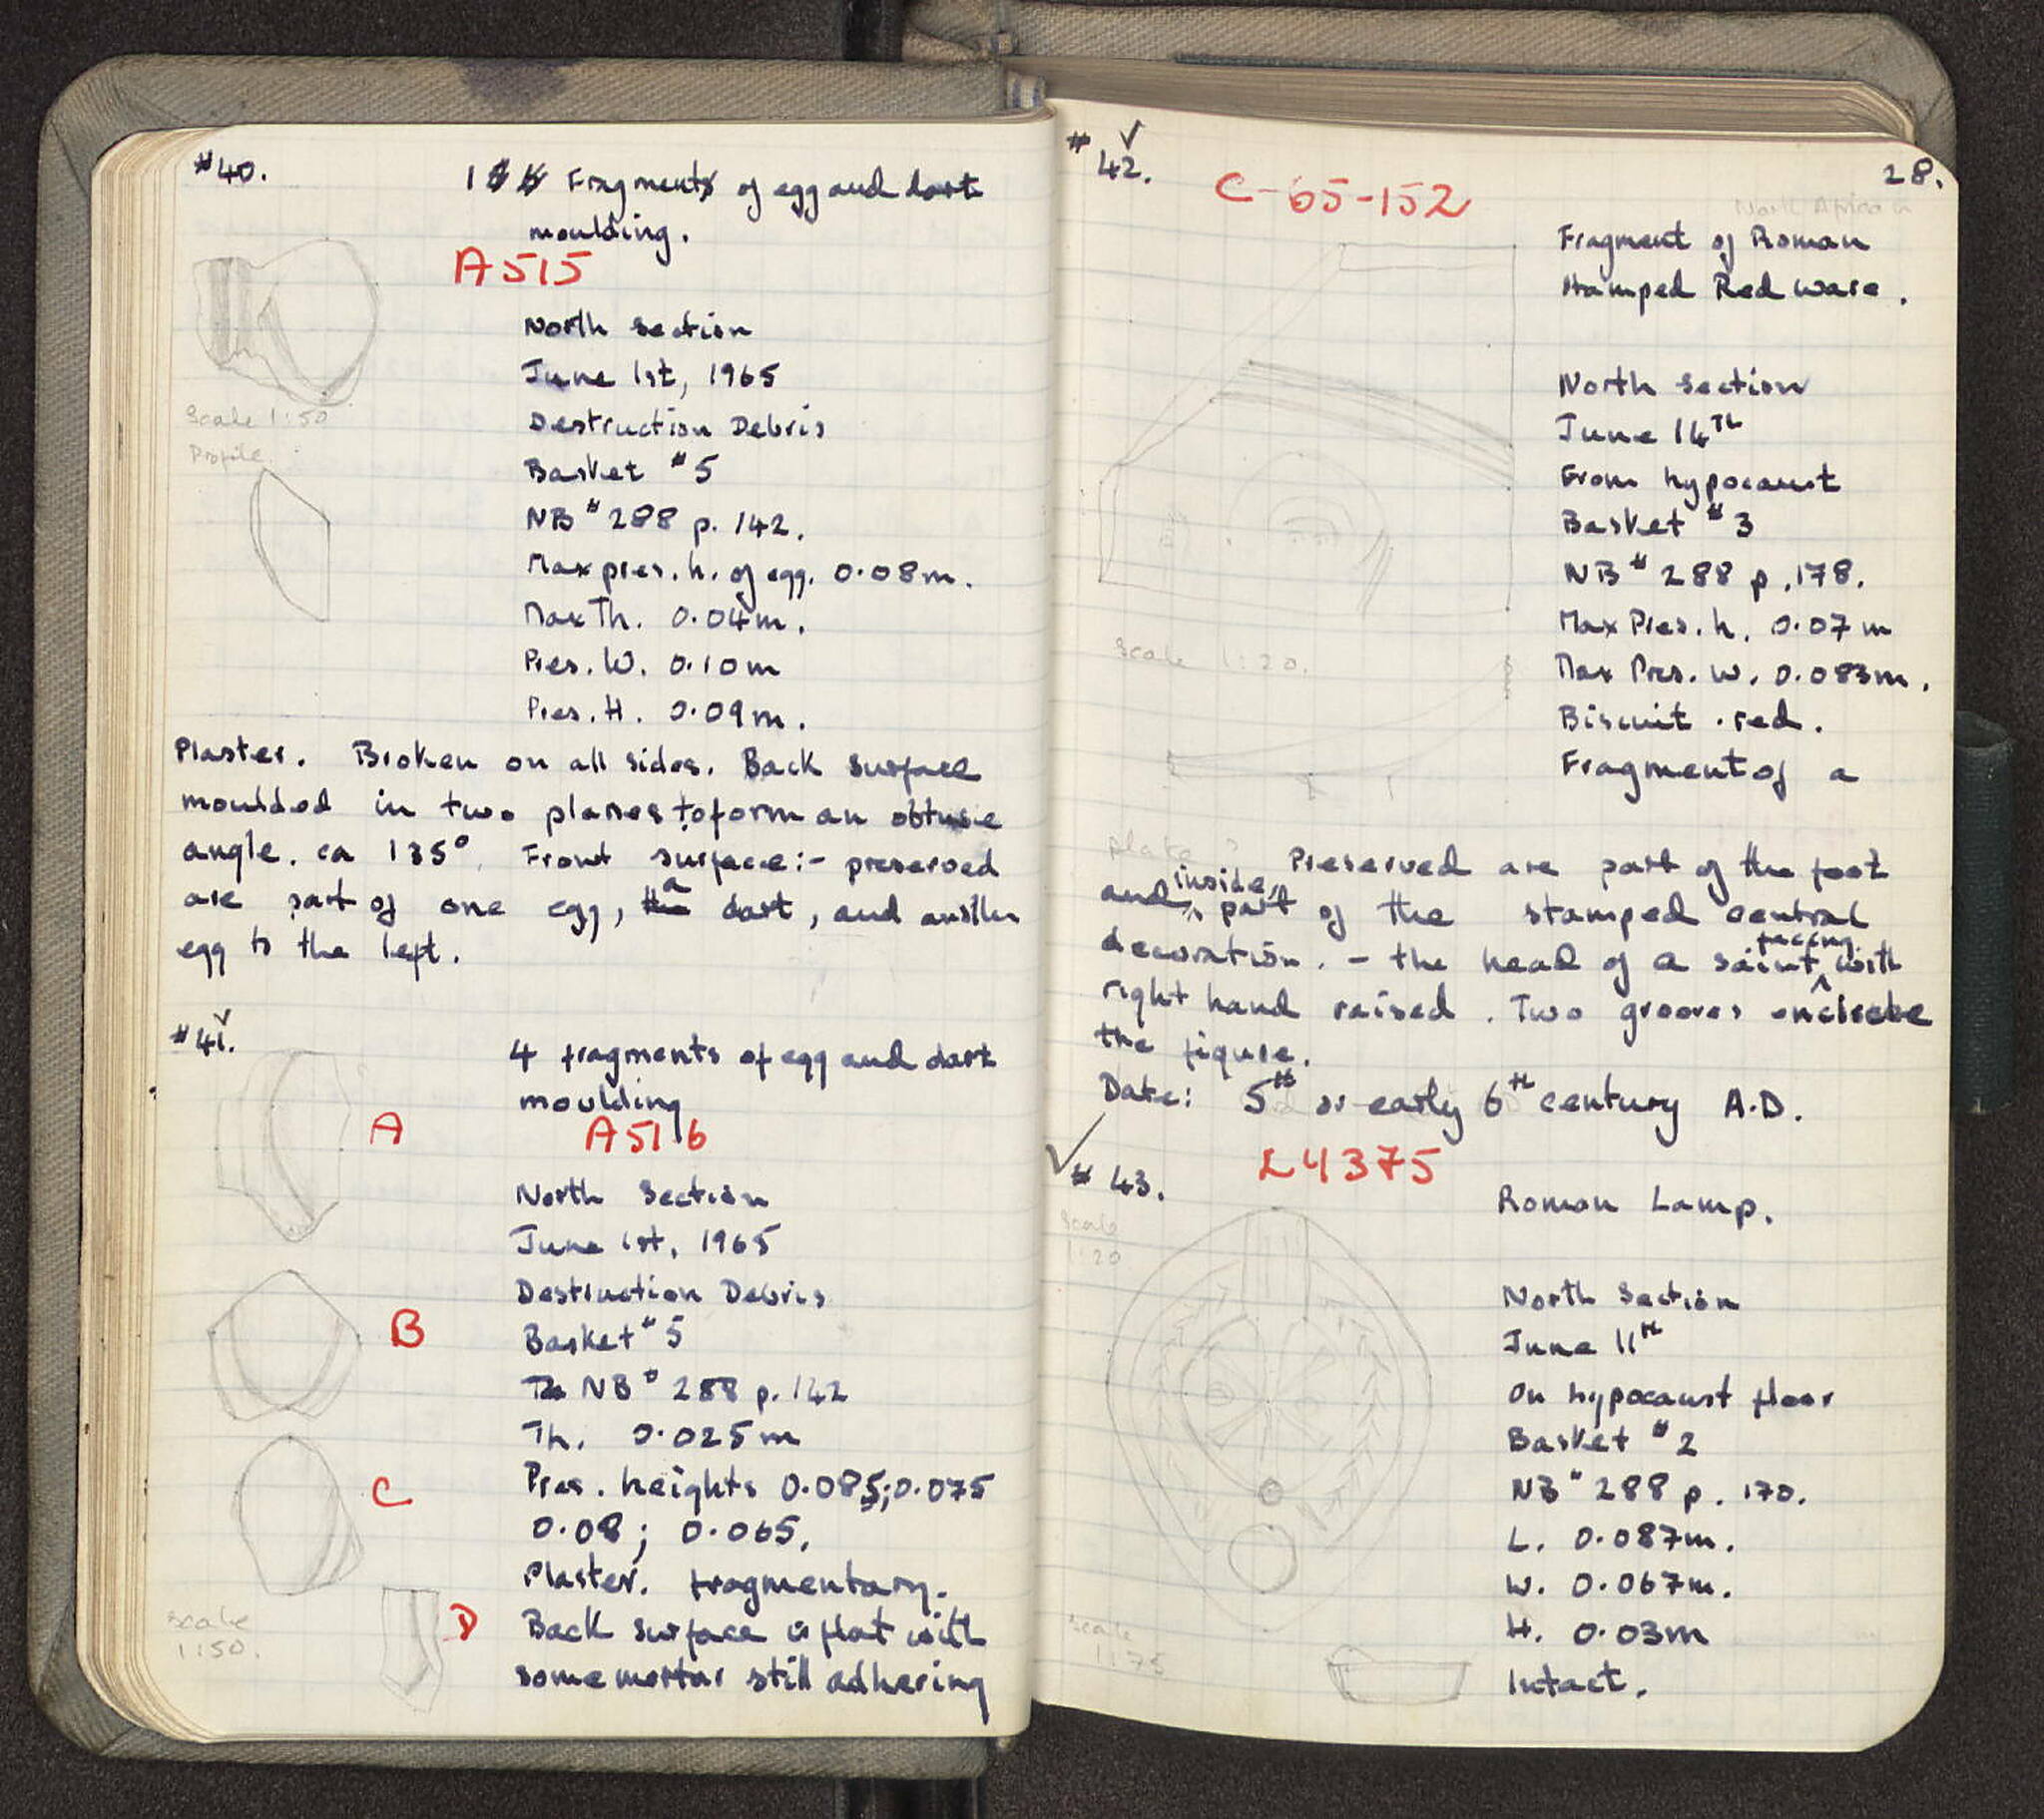 #40.
1 Fragment of egg and dart
moulding.
A515
North Section
June 1st, 1965
Scale 1:50
Destruction Debris
Profile.
Basket #5
NB # 288 p. 142.
Max pres. h. of egg. 0.08m.
Max Th. 0.04m.
Pres. W. 0.10m
Pres. H. 0.09m.
Plaster. Broken on all sides. Back surface
moulded in two planes to form an obtuse
angle. ca 135°. Front surface:- preserved
are part of one egg, a dart, and another
egg to the left.
#41.
4 fragments of egg and dart
moulding
A
A516
North Section
June 1st, 1965
Destruction Debris
B
Basket #5
NB # 288 p. 142
Th. 0.025m
C
Pres. heights 0.085; 0.075
0.08; 0.065.
Plaster. fragmentary.
scale
1:50.
D
Back surface is flat with
some mortar still adhering
28.
# 42.
C-65-152
North African
Fragment of Roman
stamped Red ware.
North Section
June 14th
From hypocaust
Basket #3
NB # 288 p. 178.
Max Pres. h. 0.07 m
Scale 1:20.
Max Pres. W. 0.083m.
Biscuit. red.
Fragment of a
plate? Preserved are part of the foot
and inside, part of the stamped central
decoration. - the head of a saint facing with
right hand raised. Two grooves encircle
the figure.
Date: 5th or early 6th century A.D.
L4375
# 43.
Roman Lamp.
Scale
1:20
North Section
June 11th
On hypocaust floor
Basket #2
NB # 288 p. 170.
L. 0.087m.
W. 0.067m.
H. 0.03m
Scale
1:75
Intact.